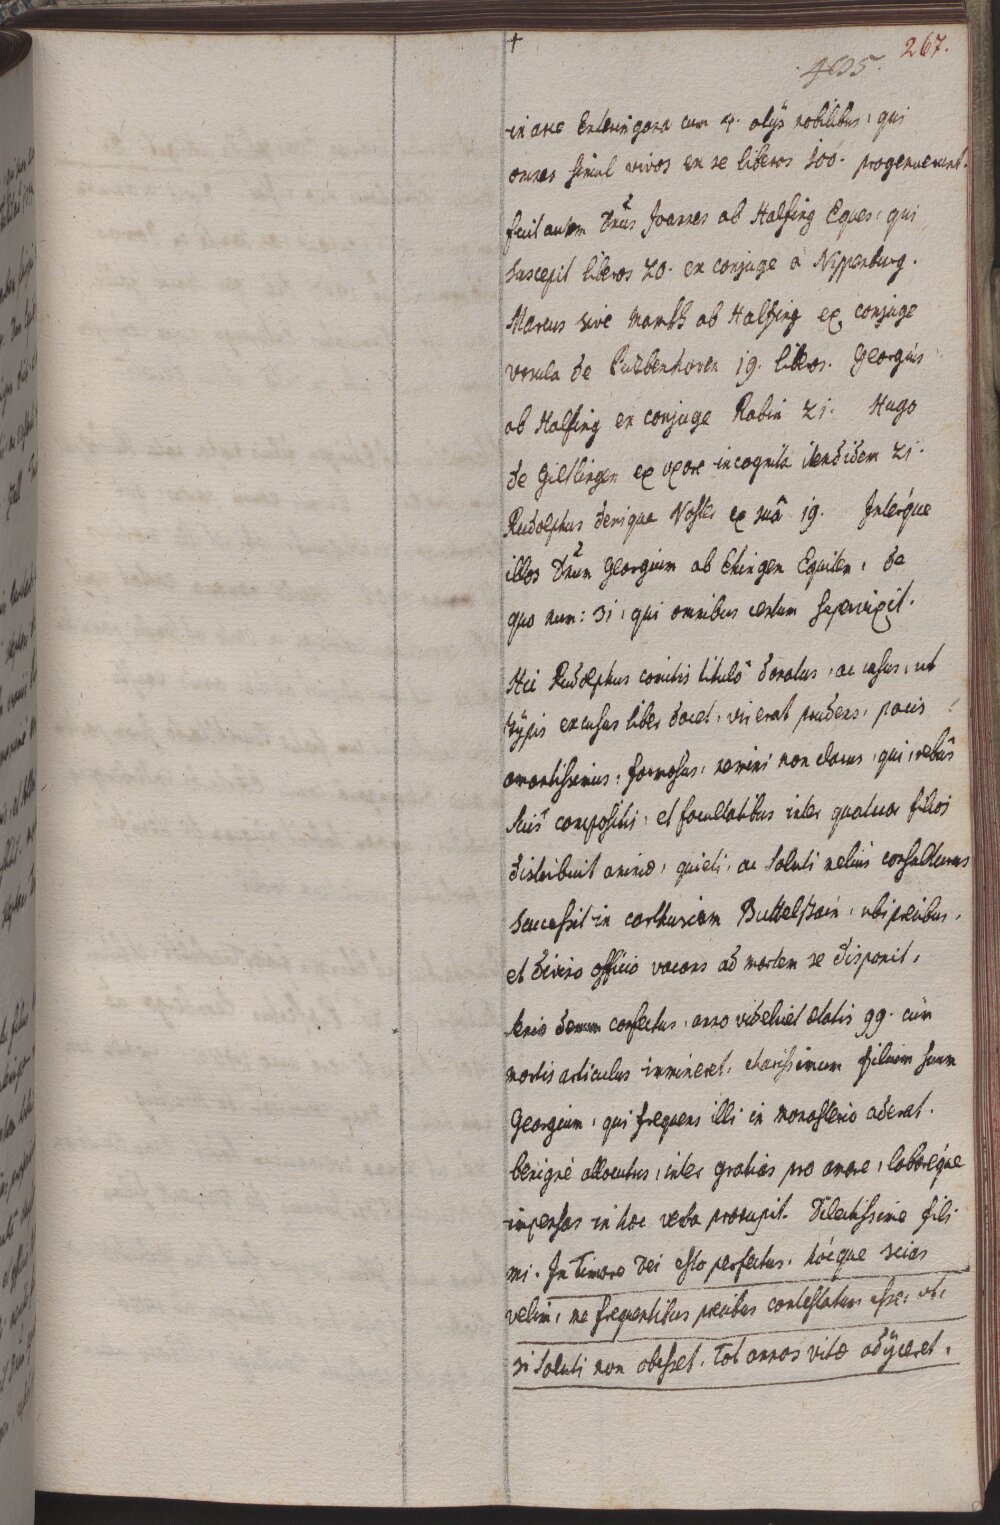 †
267.
in arce Entringana cum 4. alijs nobilibus, qui
omnes simul vivos ex se liberos 100. progenuerunt.
fuit autem Dnus Joannes ab Halfing Eques, qui
suscepit liberos 20. ex conjuge à Nippenburg.
Marcus sive ab Halfing ex conjuge
Ursula de 19. liberos. Georgius
ab Halfing ex conjuge Rabin 21. Hugo
de Giltlingen ex uxore incognita itendidem 21.
Rudolphus denique Noster ex suâ 19. Interque
illos Dnum Georgium ab Ehingen Equitem, de
quo num: 31, qui omnibus certum supervixit.
Hic Rudolphus comitis titulô donatus, ac usus, ut
typis excusus liber docet, vir erat prudens, pacis
amantissimus, formosus, nemini non charus, qui, rebus
suis compositis, et facultatibus inter quatuor filios
distribuit animo, quieti, ac saluti melius consulturus
successit in carthusiam Buttelstain, ubi precibus,
et divino officio vacans ad mortem se disponit,
senio demum confectus, anno videlicet ætatis 99. cum
mortis articulus immineret, charissimum filium suum
Georgium, qui frequens illi in monasterio aderat.
benignè allocutus, inter gratias pro amore, laboreque
impensas in hæc verba prorupit. Dilectissime fili
mi. In timore Dei esto perfectus, hócque scias
velim, me frequentibus precibus contestatum esse, ut,
si saluti non obesset, tot annos vitæ adijceret,